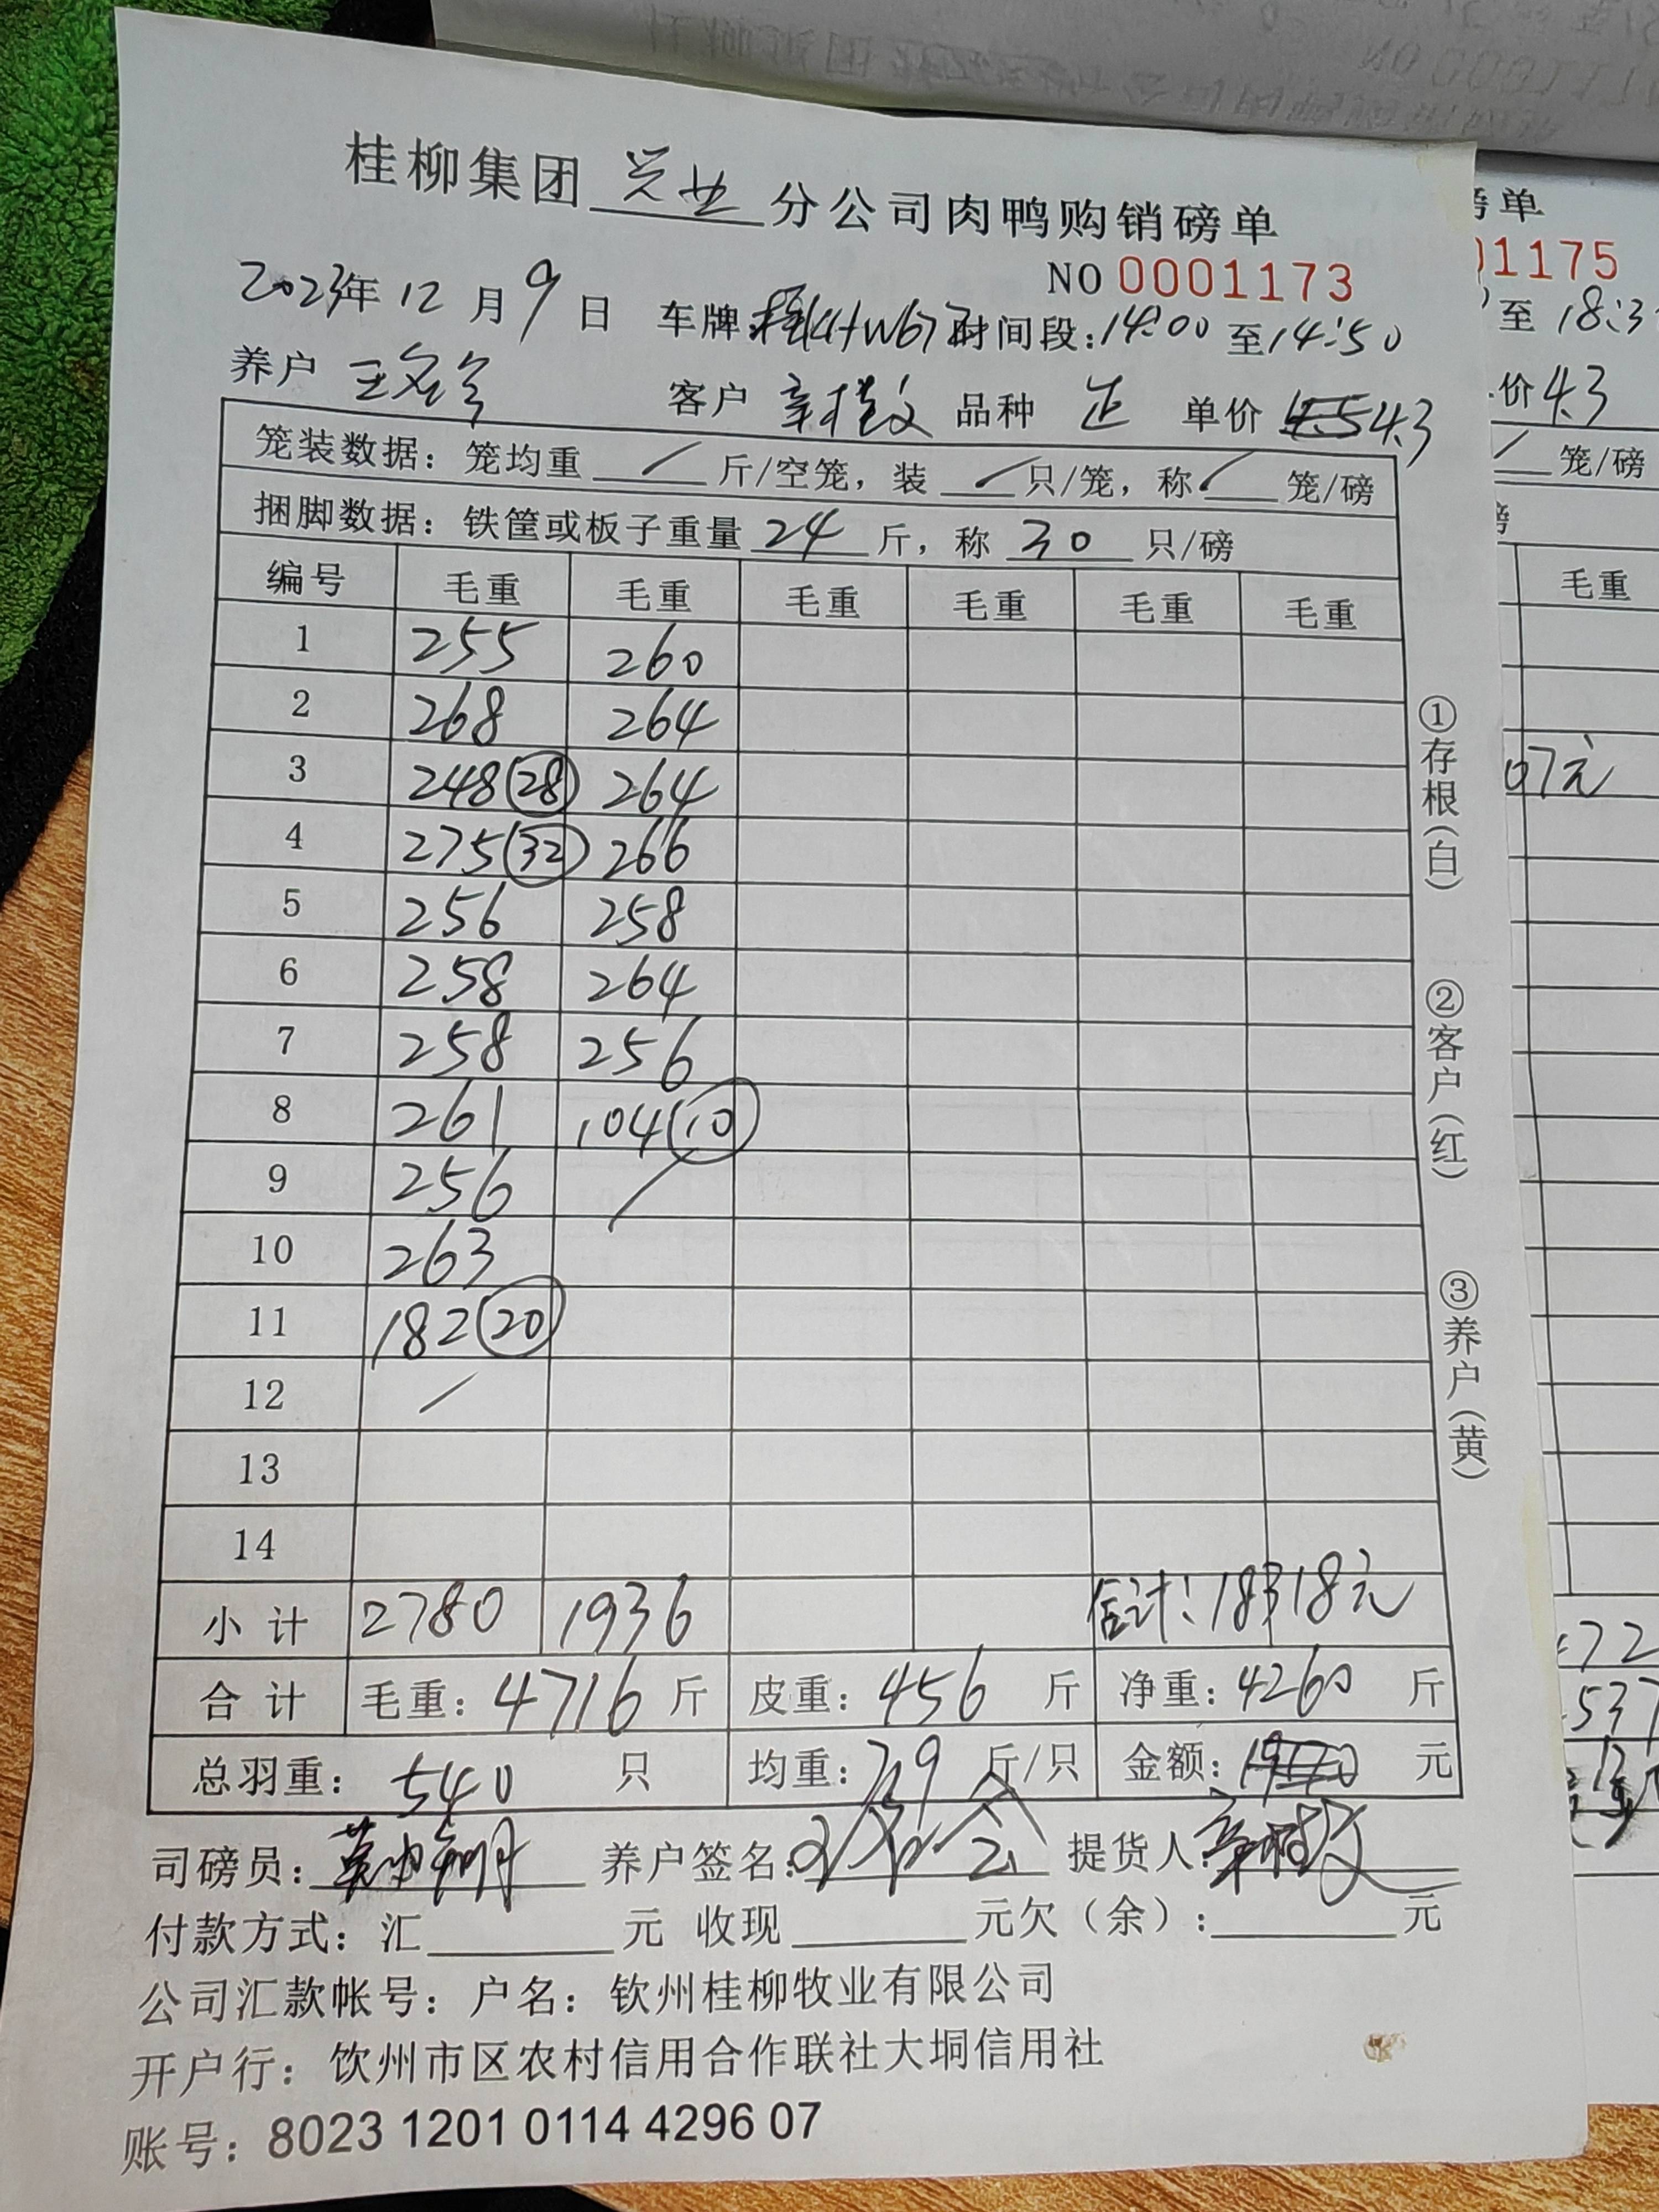 桂柳集团 兴业 分公司肉鸭购销磅单
NO 0001173
2023年 12 月 9 日 车牌: 时间段: 14:00 至 14:50
养户 客户 品种 正 单价 4.3
笼装数据: 笼均重 / 斤/空笼, 装 / 只/笼, 称 / 笼/磅
捆脚数据: 铁筐或板子重量 24 斤, 称 30 只/磅
编号 毛重 毛重 毛重 毛重 毛重 毛重
1 255 260
2 268 264
3 248 (28) 264
4 275 (32) 266
5 256 258
6 258 264
7 258 256
8 261 104 (10)
9 256 /
10 263
11 182 (20)
12 /
13
14
小计 2780 1936 合计: 18318元
合计 毛重: 4716 斤 皮重: 456 斤 净重: 4260 斤
总羽重: 540 只 均重: 7.9 斤/只 金额: 元
司磅员: 养户签名: 提货人:
付款方式: 汇 元 收现 元欠(余): 元
公司汇款帐号: 户名: 钦州桂柳牧业有限公司
开户行: 饮州市区农村信用合作联社大垌信用社
账号: 8023 1201 0114 4296 07
①存根(白)
②客户(红)
③养户(黄)
磅单
01175
至 18:3
价 4.3
/ 笼/磅
磅
毛重
07元
72
537